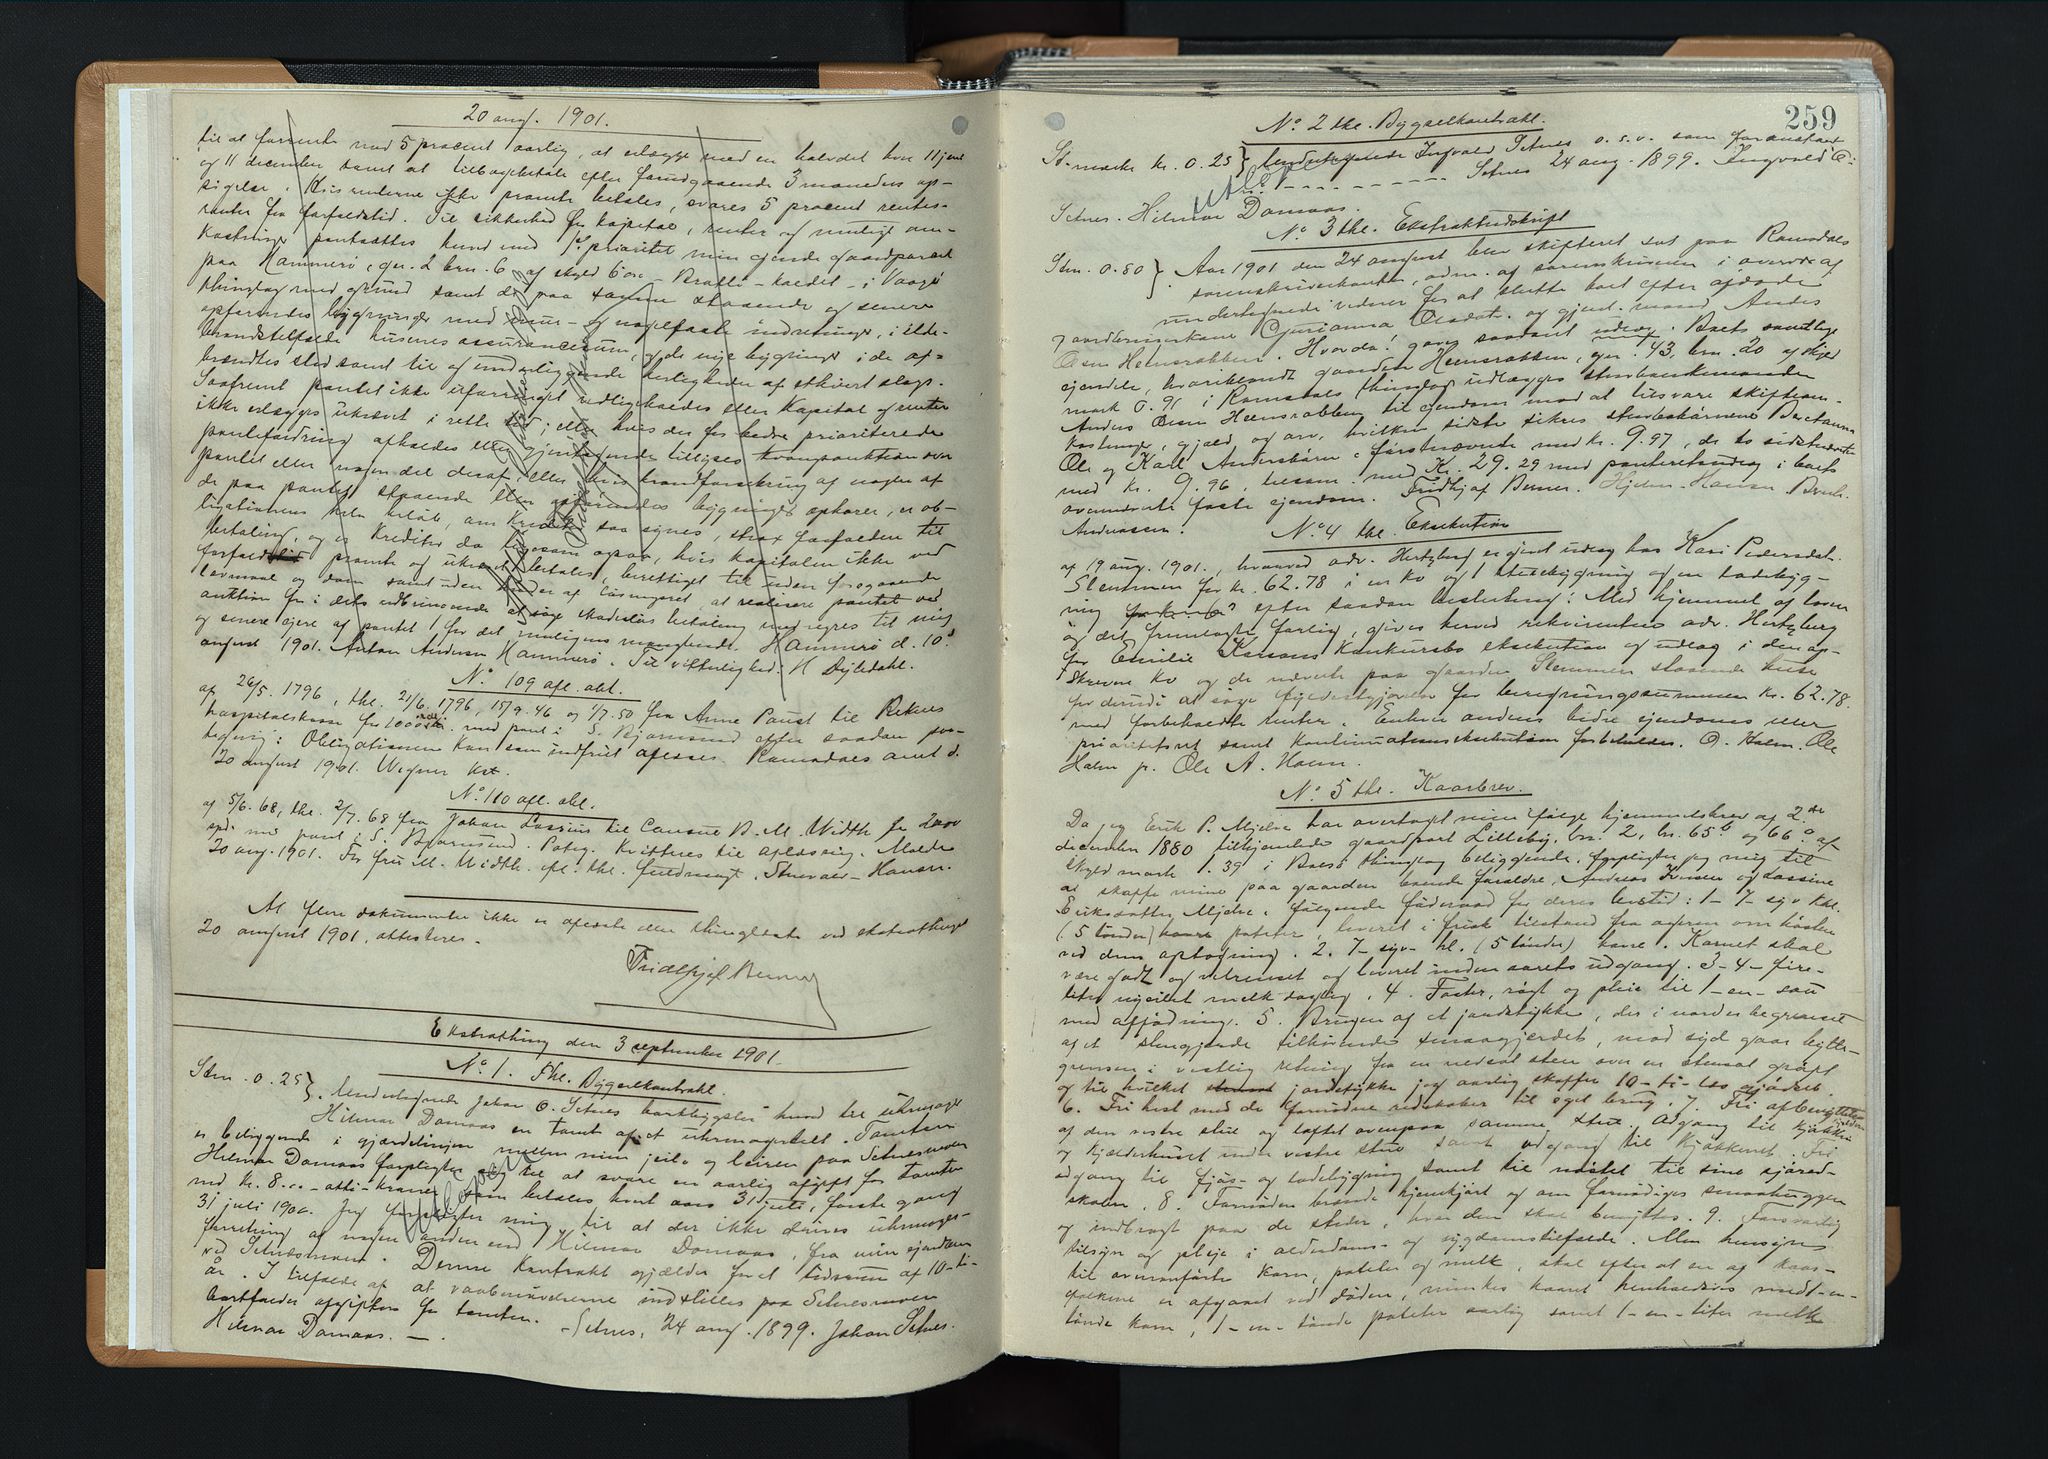 20 aug. 1901.
til at forrente med 5 procent aarlig, at erlægge med en halvdel hver 11 juni
og 11 december samt at tilbagebetale efter forudgaaende 3 maaneders op-
sigelse. Hvis renterne ikke promte betales, svares 5 procent rentes-
renter fra forfaldstid. Til sikkerhed for kapital, renter og muligt om-
kostninger pantsættes herved med 1st prioritet min eiende gaardparsel
paa Hammerö, gr. 2 brn. 6 af skyld 6 öre - Bratli - kaldet - i Vaagö
thinglag med grund samt de paa samme staaende og senere
opförendes bygninger med mur- og nagelfaste indretninger, i ilde-
brandstilfælde husenes assurancesum, og de nye bygninger i de af-
brændtes sted samt til og underliggende herligheder af ethvert slags.
Saafremt pantet ikke uforringet vedligeholdes eller kapital og renter
ikke erlægges ukrævet i rette tid, eller hvis der for bedre prioriterede
pantefordring afholdes eller gjentagende tillyses tvangsauktion over
pantet eller nogen del deraf, eller hvis brandforsikring af nogen af
de paa pantet staaende eller opförendes bygninger ophörer, er ob-
ligationens hele belöb, om kreditor saa synes, strax forfalden til
betaling, og er kreditor da ligesom ogsaa, hvis kapitalen ikke ved
forfaldstid promte og ukrævet betales, berettiget til uden foregaaende
lovmaal og dom samt uden hinder af lösningsret, at realisere pantet ved
auktion for i dets udbringende at söge skadeslös betaling med regres til mig
og senere eiere af pantet for det muligens manglende. Hammerö d. 10.
august 1901. Anton Andersen Hammerö. Til vitterlighed: H Dyledahl.
No 109 afl. obl.
af 26/5. 1796, thl. 21/6. 1796, 15/9. 46 og 1/7. 50 fra Anne Paust til Reknes
hospitalskasse for 1000 rdr. med pant i S. Björnsund efter saadan paa-
tegning: Obligationen kan som indfriet aflæses. Romsdals amt d.
20 august 1901. Wegner kst.
No 110 afl. obl.
af 5/6. 68, thl. 2/7. 68 fra Johan Lossius til Consul B. M. Width for 2000
spd. med pant i S. Björnsund. Pateg. Kvitteres til aflæsning. Molde
20 aug. 1901. For fru M. Width efl. thl. fuldmagt. Thorvald Hansen.
At flere dokumenter ikke er aflæste eller thinglæste ved ekstrathinget
20 august 1901, attesteres.
Fridthjof Berner
Ekstrathing den 3 september 1901.
No 1. Thl. Byggselkontrakt.
Stm. 0.25} Undertegnede Johan O. Setnes bortbygsler herved til uhrmager
Hilmar Domaas en tomt af et uhrmagerbelt. Tomten
er beliggende i gjærdelinjen mellem min jeile og leiren paa Setnesmoen
Hilmar Domaas forpligter sig til at svare en aarlig afgift for tomten
med kr. 8.00 - otte - kroner som betales hvert aars 31 juli, förste gang
31 juli 1900. Jeg forpligter mig til at der ikke drives uhrmager-
forretning af nogen anden end Hilmar Domaas, fra min eiendom
ved Setnesmoen. Denne kontrakt gjælder for et tidsrum af 10 - ti -
år. I tilfælde af at vaabenövelserne indstilles paa Setnesmoen
bortfalder afgiften for tomten. - Setnes, 24 aug. 1899. Johan Setnes.
Hilmar Domaas. -
259
No 2 thl. Byggselkontrakt.
St.marke kr. 0.25} Undertegnede Ingvald Setnes o.s.v. som foranstaat
Setnes 24 aug. 1899. Ingvald O.
Setnes. Hilmar Domaas.
No 3 thl. Ekstraktudskrift
Stm. 0.50} Aar 1901 den 24 august blev skifteret sat paa Romsdals
sorenskriverkontor, adm. af sorenskriveren i overvær af
undertegnede vidner for at slutte boet efter afdöde
gaardbrugerkone Gjurianna Olsdtr. og gjenl. mand Anders
Olsen Hensrabben. Hvorda: gaves saadant udlæg. Boets samtlige
eiendele, hvoriblandt gaarden Hensrabben, gnr. 43, brn. 20 af skyld
mark 0.91 i Romsdals thinglag udlægges sterbenkemanden
Anders Olsen Hensrabben til eiendom mod at tilsvare skifteom-
kostninger, gjæld og arv, hvilken sidste sikres sterbobörnene Berthanna
Ole og Karl Andersbörn - förstnævnte med kr. 9.97, de to sidstnævnte
med kr. 9.96, tilsam. med kr. 29.29 med panteretsudlæg i boets
ovennævnte faste eiendom. Fridthjof Berner. Hjelm-Hansen Bernh.
Andreassen.
No 4 thl. Eksekution
af 19 aug. 1901, hvorved adv. Hertzberg er givet udlæg hos Kari Pedersdtr.
Slemmen for kr. 62.78 i en ko og 1 stuebygning og en ladebyg-
ning efter saadan beslutning: Med hjemmel af loven
og det fremlagte forlig, gives herved rekvirenten adv. Hertzberg
for Emilie Larsens konkursbo eksekution og udlæg i den op-
skrevne ko og de nævnte paa gaarden Slemmen staaende huse
for derudi at söge fyldestgjörelse for beregningssummen kr. 62.78
med forbeholdte renter. Enhver andens bedre eiendoms eller
prioritetsret samt kontinuationseksekution forbeholdes. O. Holm. Ole
Holm p. Ole A. Holm.
No 5 thl. Kaarbrev.
Da jeg Erik P. Mjelve har overtaget min ifölge hjemmelsbrev af 2. de
december 1880 tilhjemlede gaardpart Lilleby, brn. 2, lr. 65 b og 66 a af
skyld mark 1.39 i Bolsö thinglag beliggende, forpligter jeg mig til
at skaffe mine paa gaarden boende foraldre, Andreas Knusen og Lassine
Eriksdatter Mjelve, fölgende föderaad for deres levetid: 1 - 7 - syv hl.
(5 tönder) poteter, leveret i frisk tilstand fra ageren om hösten
ved dens optagning. 2. 7 - syv - hl. (5 tönder) havre. Kornet skal
være godt og velrenset og leveret inden aarets udgang. 3 - 4 - fire -
liter nysilet melk daglig. 4. Foster, rögt og pleie til 1 - en - sau
med afföding. 5. Brugen af et jordstykke, der i norder begrænset
af et stengjærde tilhörende smaagjerdet, mod syd gaar bytte-
grænsen i vestlig retning fra en nedsat sten over en stensat gröft
og til hvilket jordstykke jeg aarlig skaffer 10 - ti - læs gjödsel.
6. Fri hest med de fornödne redskaber til eget brug. 7. Fri afbenyttelse
af den vestre stue og loftet ovenpaa samme stue. Adgang til kjökken
og kjælderhuset under vestre stue samt udgang til kjökkenet. Fri
adgang til fjös- og ladebygning samt til nöstet til sine sjöred-
skaber. 8. Fornöden brænde hjemkjört og om fornödiges smaahuggen
og indbragt paa de steder, hvor den skal benyttes. 9. Forsvarlig
tilsyn og pleje i alderdoms- og sygdomstilfælde. Men hensyns
til ovenanförte korn, poteter og melk, skal efter at en af kaar-
folkene er afgaaet ved döden, mindes kaaret henholdsvis med 1 - en -
tönde korn, 1 - en - tönde poteter aarlig samt 1 - en - liter melk